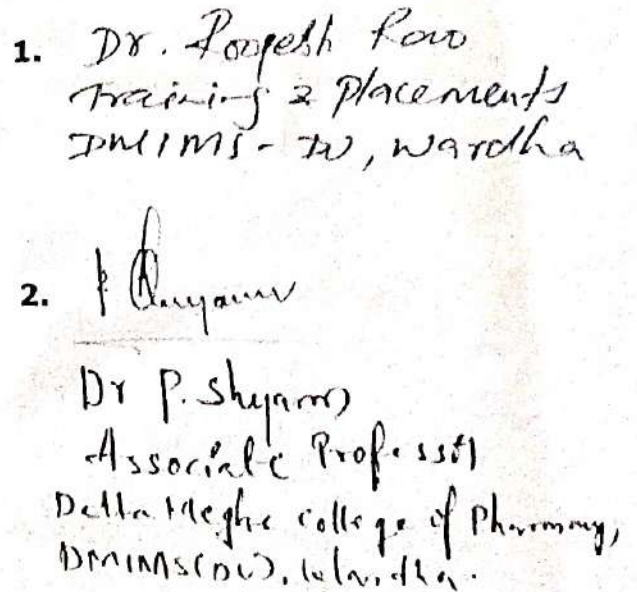 1. Dr. Roopesh Rao
Training & Placements
DMIMS-DU, Wardha
2. P
Dr P. Shyam
Associate Professor
Datta Meghe college of Pharmacy,
DMIMS(DU), Wardha.